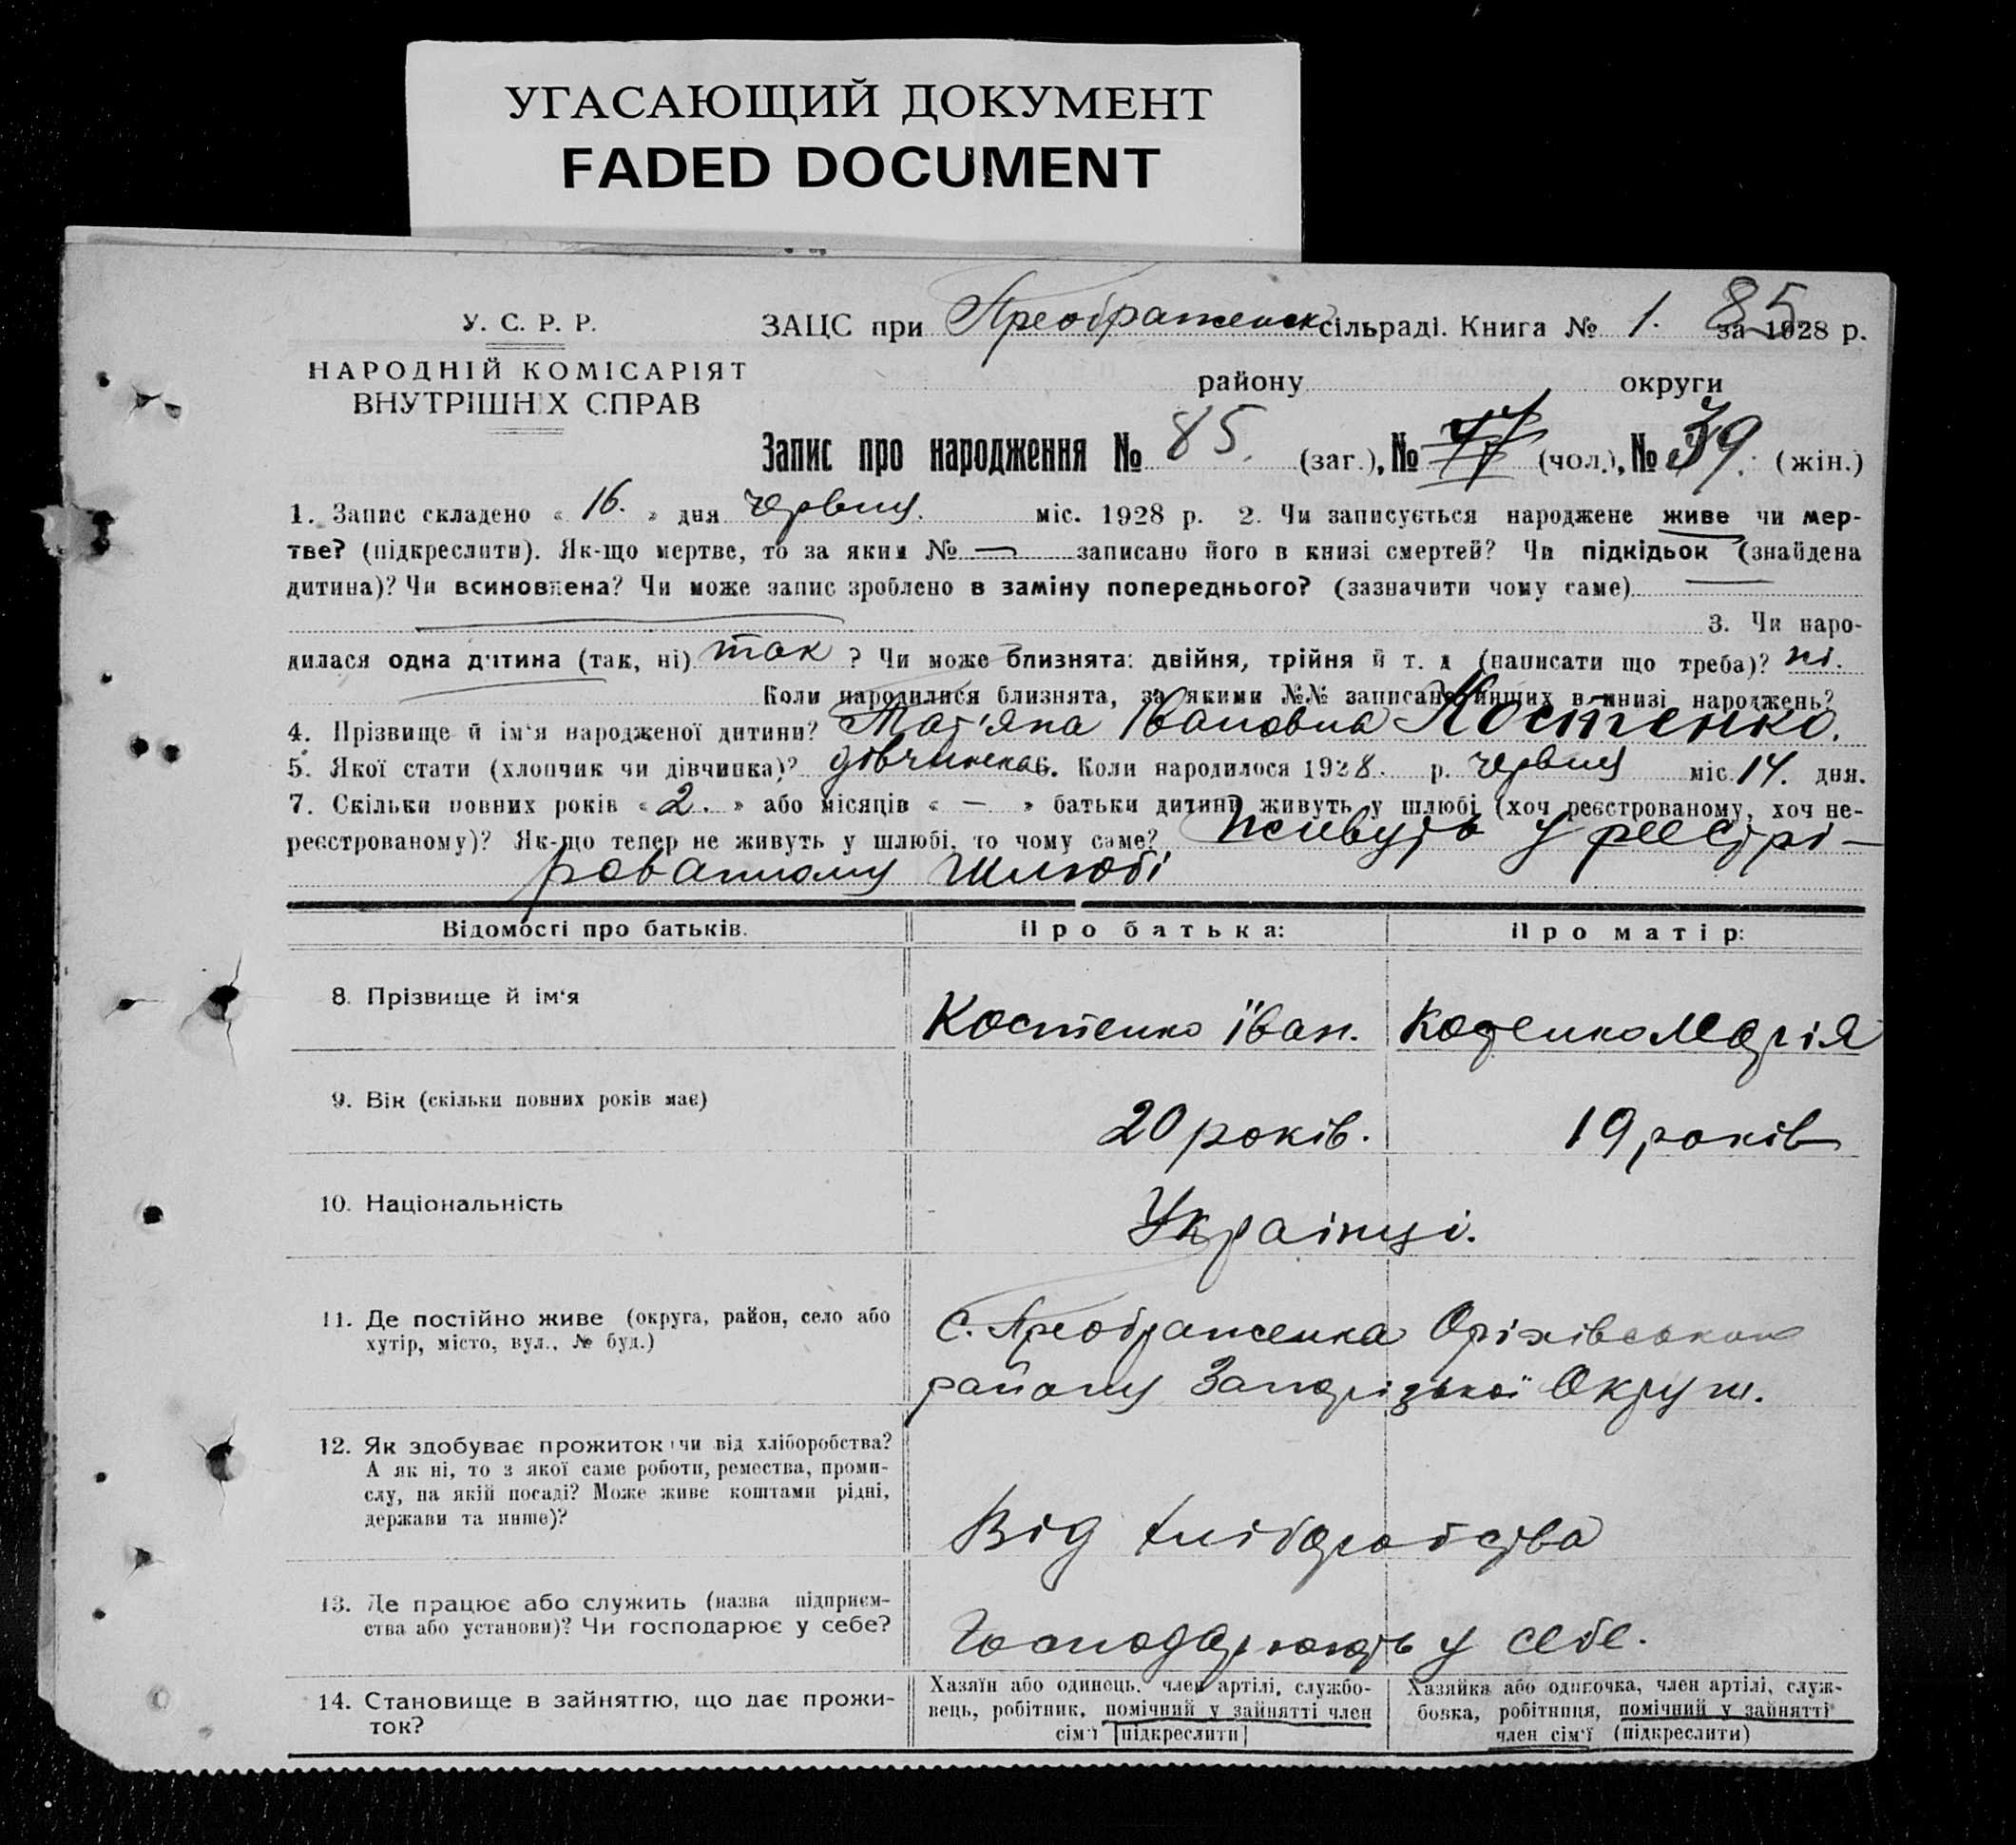 УГАСАЮЩИЙ ДОКУМЕНТ
FADED DOCUMENT
85
У. С. Р. Р.
НАРОДНІЙ КОМІСАРІЯТ
ВНУТРІШНІХ СПРАВ
ЗАЦС при Преображенск сільраді. Книга № 1. за 1928 р.
району округи
Запис про народження № 85. (заг.), № (чол.), № 39. (жін.)
1. Запис складено « 16. » дня червня. міс. 1928 р. 2. Чи записується народжене живе чи мер-
тве? (підкреслити). Як-що мертве, то за яким № — записано його в книзі смертей? Чи підкідьок (знайдена
дитина)? Чи всиновлена? Чи може запис зроблено в заміну попереднього? (зазначити чому саме) —
3. Чи наро-
дилася одна дитина (так, ні) так ? Чи може близнята: двійня, трійня й т. д (написати що треба)? ні.
Коли народилися близнята, за якими №№ записано инших в книзі народжень?
4. Прізвище й ім‘я народженої дитини? Тат'яна Івановна Костенко.
5. Якої стати (хлопчик чи дівчинка)? дівчинка 6. Коли народилося 1928. р. червня міс. 14. дня.
7. Скільки повних років « 2. » або місяців « — » батьки дитини живуть у шлюбі (хоч реєстрованому, хоч не-
реєстрованому)? Як-що тепер не живуть у шлюбі, то чому саме? живуть у реєстрі-
рованному шлюбі
Відомості про батьків.
Про батька:
Про матір:
8. Прізвище й ім‘я
Костенко Іван.
Костенко Марія
9. Вік (скільки повних років має)
20 років.
19 років
10. Національність
Українці.
11. Де постійно живе (округа, район, село або
хутір, місто, вул., № буд.)
С. Преображенка Оріхівського
району Запорізької Окруж.
12. Як здобуває прожиток чи від хліборобства?
А як ні, то з якої саме роботи, ремества, проми-
слу, на якій посаді? Може живе коштами рідні,
держави та инше)?
Від хліборобства
13. Де працює або служить (назва підприєм-
ства або установи)? Чи господарює у себе?
Господарюють у себе.
14. Становище в зайняттю, що дає прожи-
ток?
Хазяїн або одинець, член артілі, службо-
вець, робітник, помічний у зайнятті член
сім‘ї [підкреслити]
Хазяйка або одиночка, член артілі, служ-
бовка, робітниця, помічний у зайнятті
член сім‘ї (підкреслити)